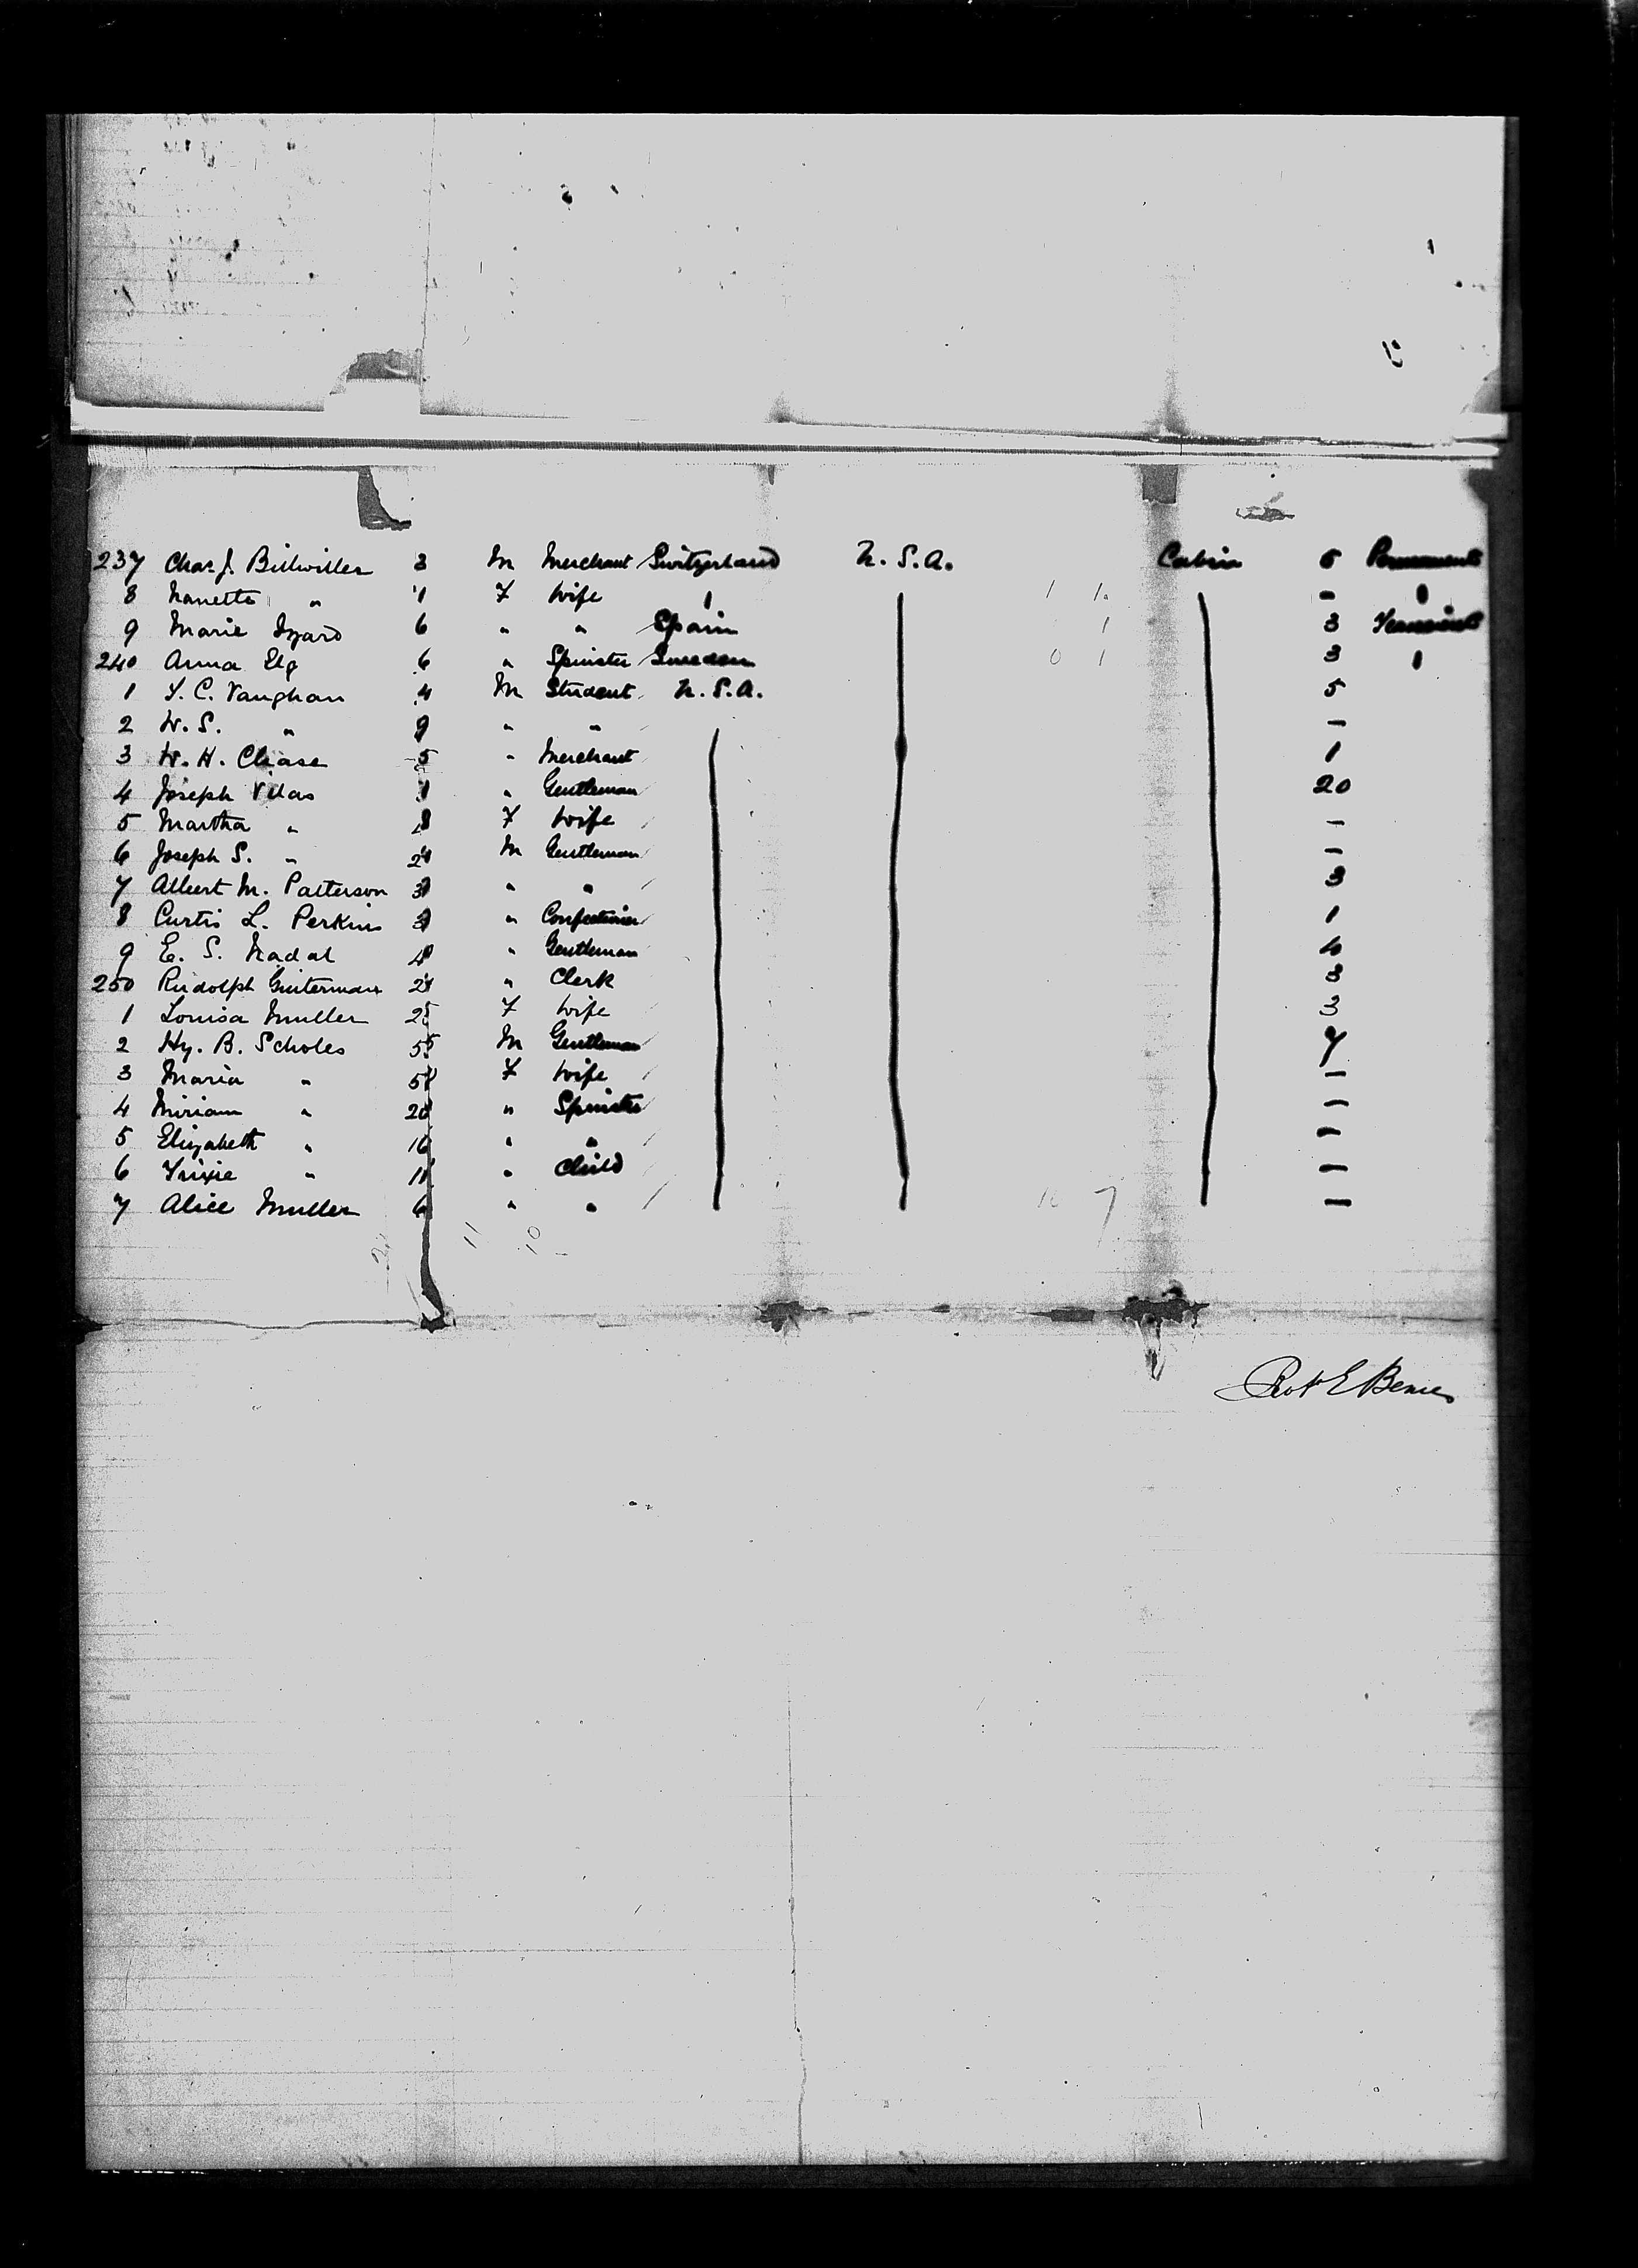 237 Chas. J. Billwiller 3 M Merchant Switzerland U.S.A. Cabin 5 Permanent
8 Nanette " 1 F Wife 1 1 –
9 Marie Izard 6 " " Spain 1 3 Transient
240 Anna Elg 6 " Spinster Sweden 0 1 3
1 T. C. Vaughan 4 M Student U.S.A. 5
2 W. S. " 9 " " –
3 W. H. Chase 5 " Merchant 1
4 Joseph Vilas " Gentleman 20
5 Martha " F Wife –
6 Joseph S. " M Gentleman –
7 Albert M. Patterson " " 3
8 Curtis L. Perkins " Confectioner 1
9 E. S. Nadal " Gentleman 4
250 Rudolph Guiterman " Clerk 3
1 Louisa Muller 25 F Wife 3
2 Hy. B. Scholes 55 M Gentleman 7
3 Maria " F Wife –
4 Miriam " 20 " Spinster –
5 Elizabeth " 16 " " –
6 Trixie " 11 " Child –
7 Alice Muller 6 " " 10 7 –
11 10